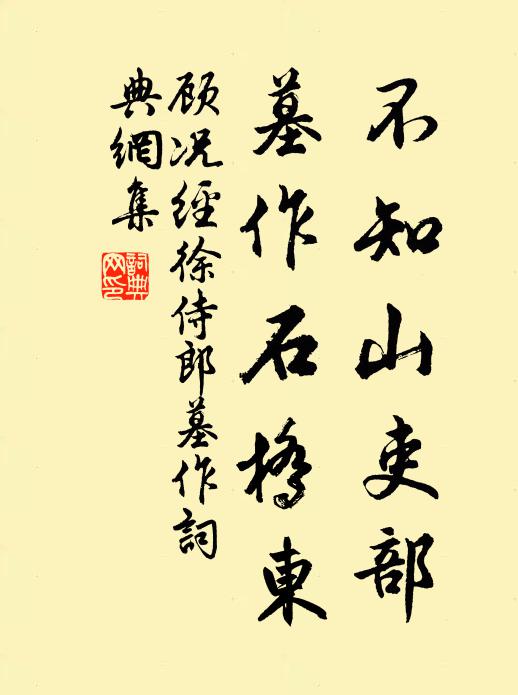 不知山吏部
墓作石橋東
顧况經徐侍郎墓作詞
典網集
詞典網印